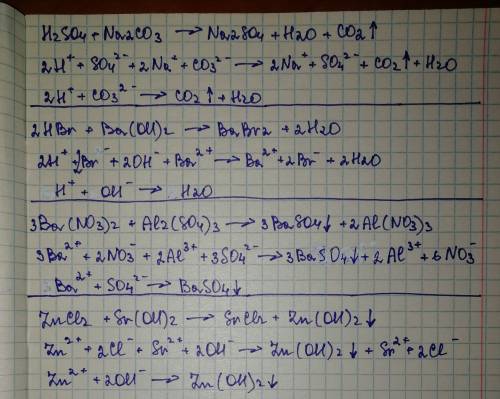 H2SO4 + Na2CO3 → Na2SO4 + H2O + CO2↑
2H⁺ + SO4²⁻ + 2Na⁺ + CO3²⁻ → 2Na⁺ + SO4²⁻ + CO2↑ + H2O
2H⁺ + CO3²⁻ → CO2↑ + H2O
2HBr + Ba(OH)2 → BaBr2 + 2H2O
2H⁺ + 2Br⁻ + 2OH⁻ + Ba²⁺ → Ba²⁺ + 2Br⁻ + 2H2O
H⁺ + OH⁻ → H2O
3Ba(NO3)2 + Al2(SO4)3 → 3BaSO4↓ + 2Al(NO3)3
3Ba²⁺ + 2NO3⁻ + 2Al³⁺ + 3SO4²⁻ → 3BaSO4↓ + 2Al³⁺ + 6NO3⁻
Ba²⁺ + SO4²⁻ → BaSO4↓
ZnCl2 + Sr(OH)2 → SrCl2 + Zn(OH)2↓
Zn²⁺ + 2Cl⁻ + Sr²⁺ + 2OH⁻ → Zn(OH)2↓ + Sr²⁺ + 2Cl⁻
Zn²⁺ + 2OH⁻ → Zn(OH)2↓